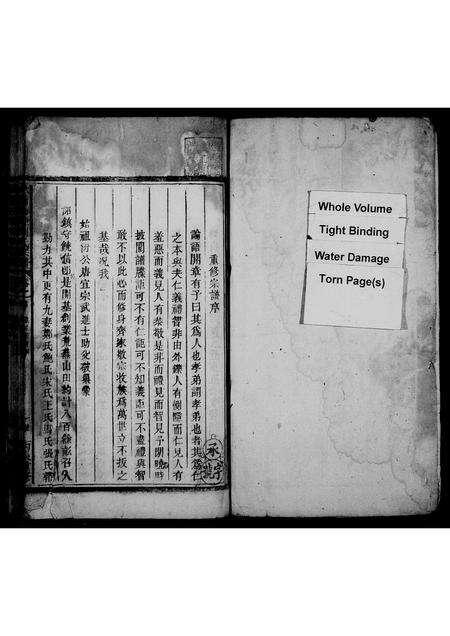 重修宗譜序
論語開章有子曰其爲人也孝弟謂孝弟也者其爲仁
之本與夫仁義禮智非由外鑠人有惻隱而仁見人有
羞惡而義見人有恭敬是非而禮見而智見予閒曉時
披閱譜牒詎可不有仁詎可不知義詎可不盡禮與智
敢不以此心而修身齊家敬宗收族爲萬世立不拔之
基哉况我
始祖 公唐宣宗武進士助 破巢
鎮守饒信 是開基創業 山田約計八百餘畝召入
勤 其中更有九妻鄭氏鮑氏宋氏王氏馬氏張氏
Whole Volume
Tight Binding
Water Damage
Torn Page(s)